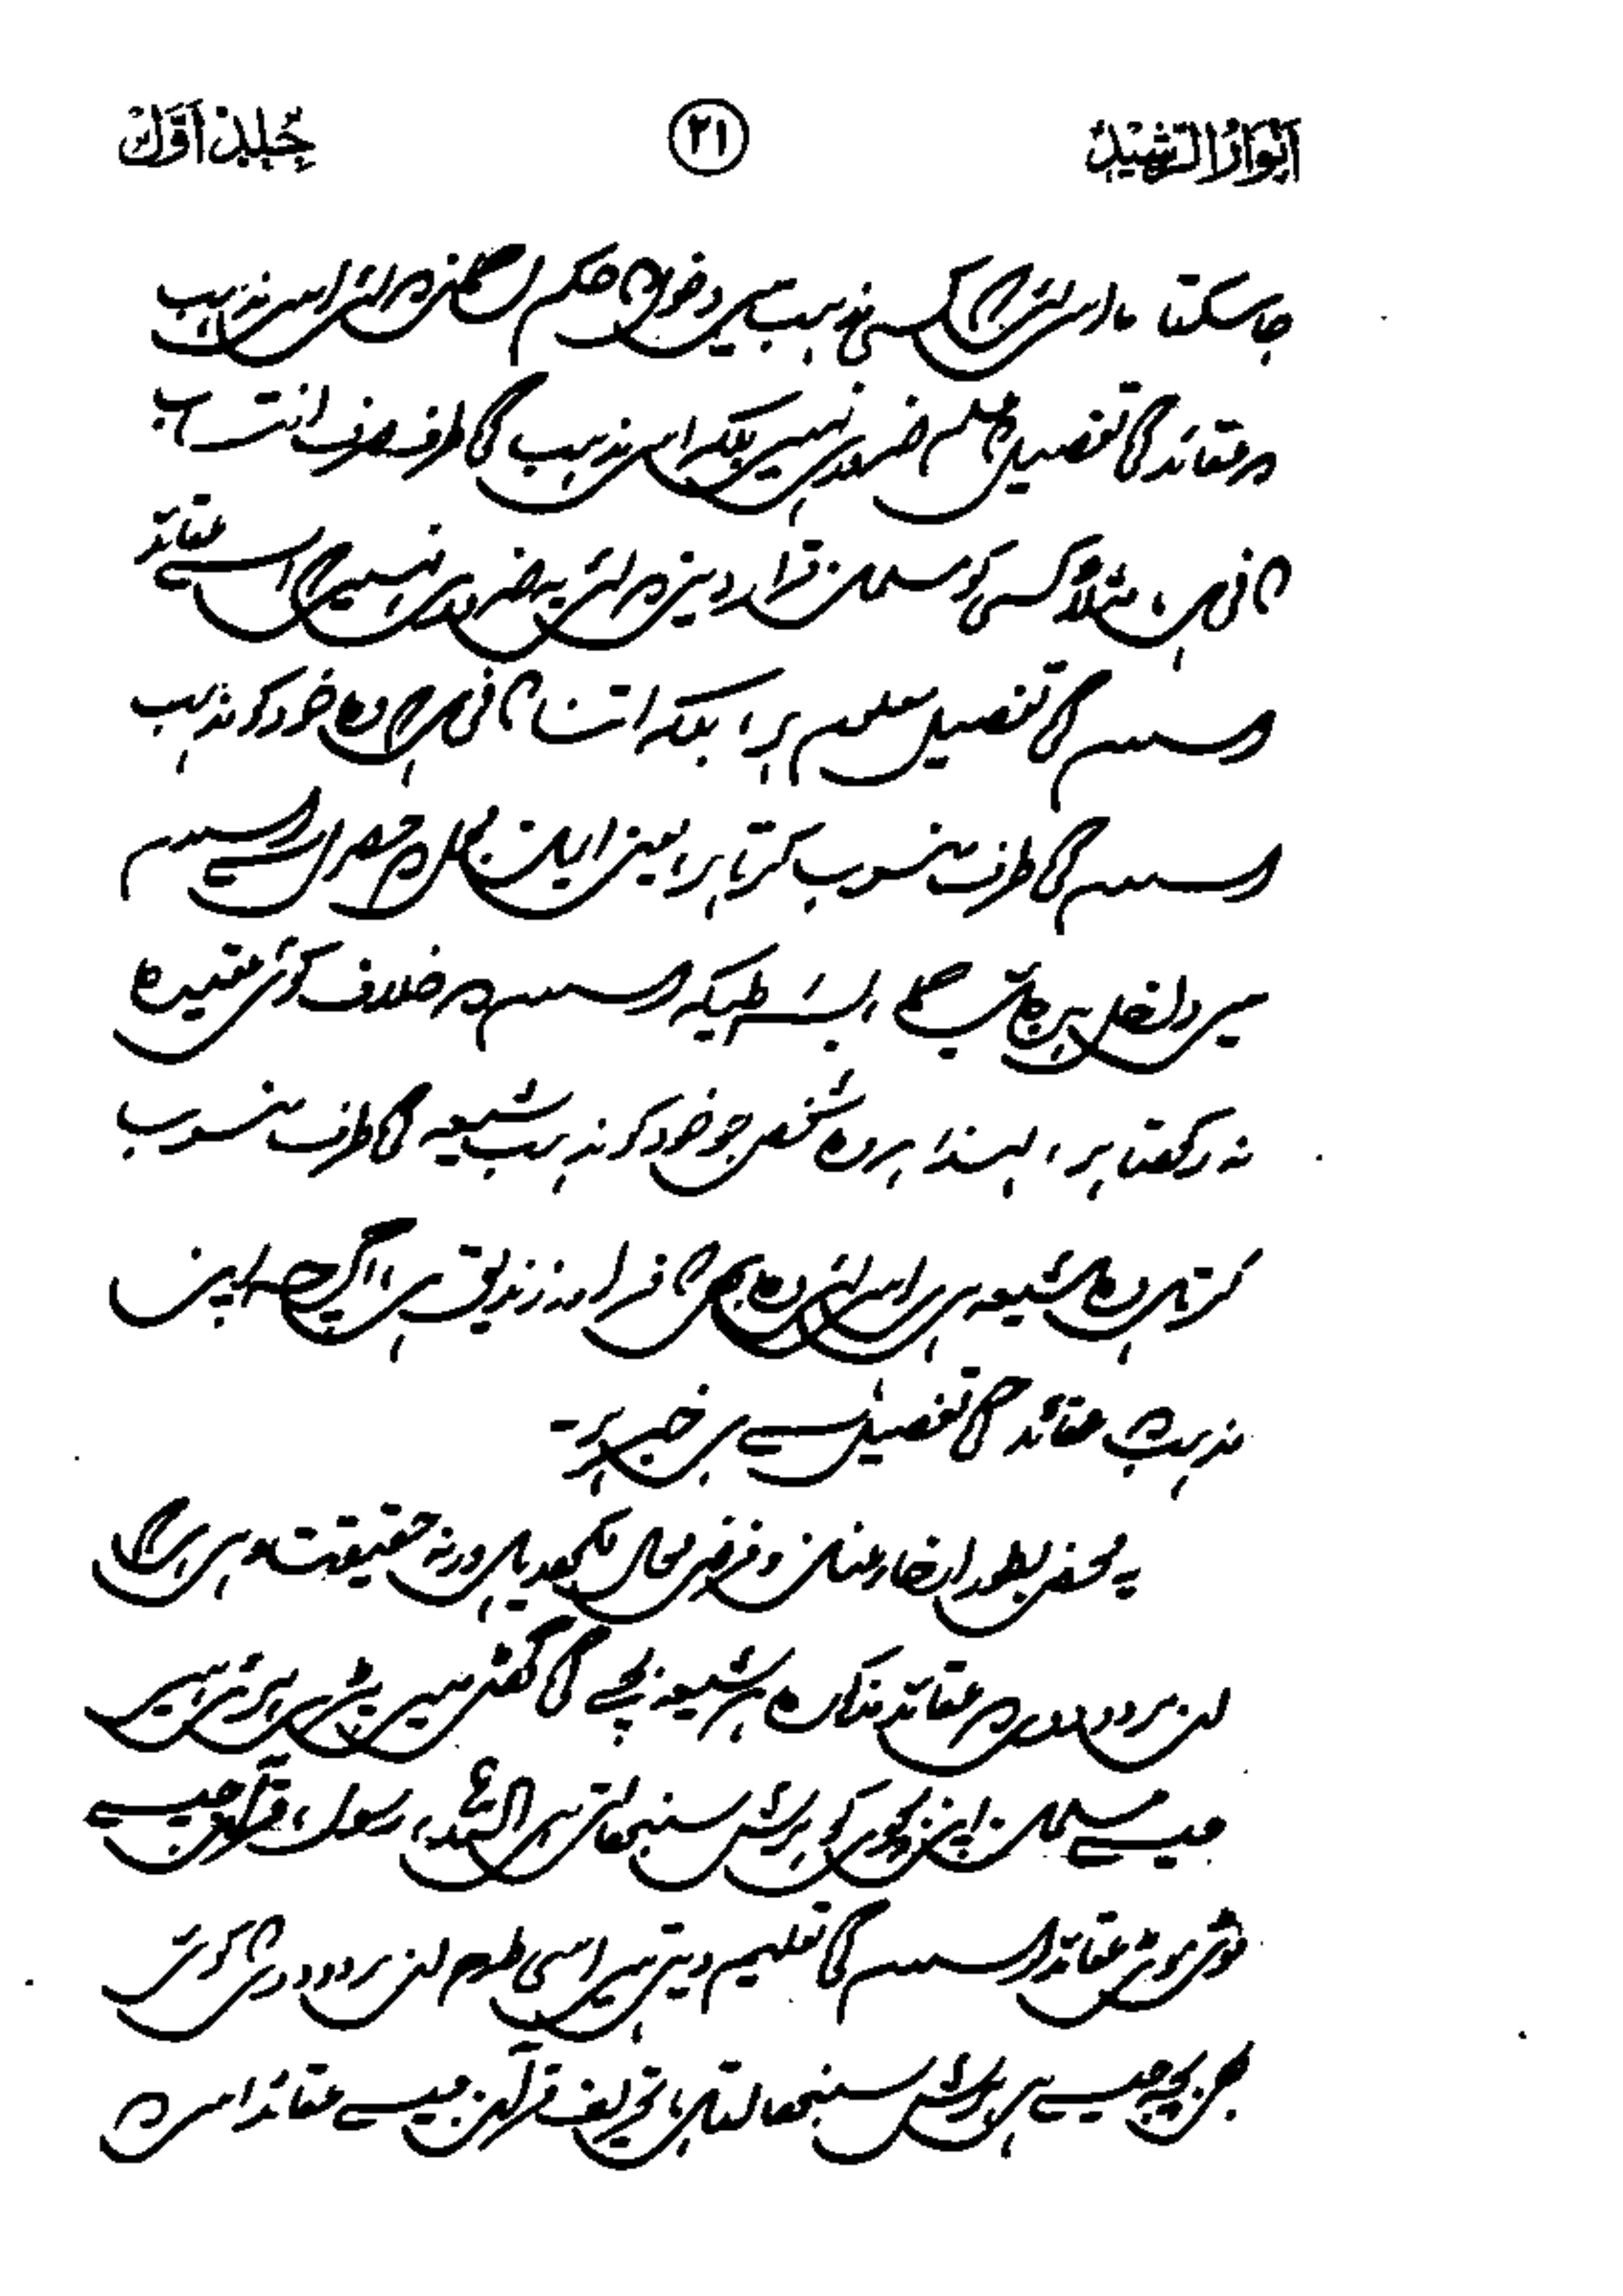 انوار الرشید ۲۱ جلد اول
جا سکتا، اس لئے کہ کسی مذہب میں دخول کا حکم لگانے کے لئے اس مذہب
کے عقائد کی تفصیل کا علم ضروری نہیں بلکہ اس مذہب کی طرف صرف انتساب
کافی ہے، مثلاً کسی کو مسلمان قرار دینے کے لئے یہ ضروری نہیں کہ اسے عقائد
اسلام کی تفصیل معلوم ہو، بلکہ اتنا کافی ہے کہ وہ خود کو مذہب
اسلام کی طرف منسوب کرتا ہو، یعنی ایمان مجمل کے حصول سے اسلام
میں داخل ہو جائے گا، بشرطیکہ اسلام کے خلاف کوئی عقیدہ
نہ رکھتا ہو، لہٰذا ہر وہ شخص جو خود کو مذہب شیعہ کی طرف منسوب
کرتا ہے وہ شیعہ ہی ہے اس لئے وہ بھی کافر اور زندیق ہے، اگرچہ اپنے
مذہب کے عقائد کی تفصیل سے بے خبر ہو۔
یہ محض بطور ارخاء عنان و فرض محال لکھ دیا ہے ورنہ حقیقت تو یہ ہے کہ
ان مردودوں کے عقائد مذکورہ ہر شیعہ بچے کی گھٹی میں پڑے ہوئے ہیں
جیسے مسلمان اپنے بچوں کو ہوش سنبھالتے ہی اللہ، رسول، قرآن جیسے
موٹے موٹے عقائد اسلام کی تعلیم دیتے ہیں اسی طرح ان مردودوں کی کوشش
بچہ جیسے ہی ہوش سنبھالتا ہے، تحریف قرآن جیسے عقائد اس کے